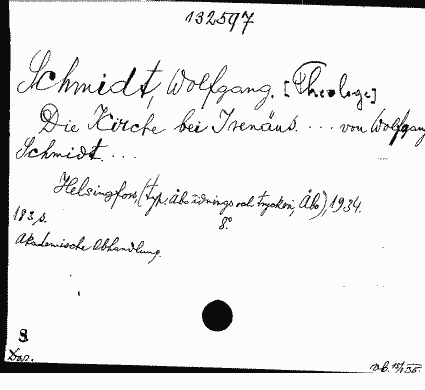 132597
Schmidt, Wolfgang. [Theologe]
Die Kirche bei Irenäus. ... von Wolfgang
Schmidt. ...
Helsingfors, (typ. Åbo tidnings och tryckeri, Åbo), 1934.
183 s. 8°
Akademische Abhandlung.
8